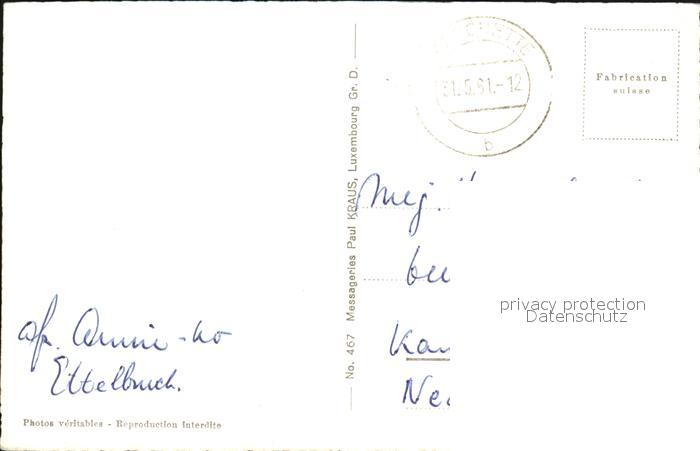 31.5.61.-12
b
Fabrication
suisse
No. 467 Messageries Paul KRAUS, Luxembourg Gr. D.
Mej.
privacy protection
Datenschutz
afz. Annie-ko
Ettelbruck.
Photos véritables - Reproduction Interdite